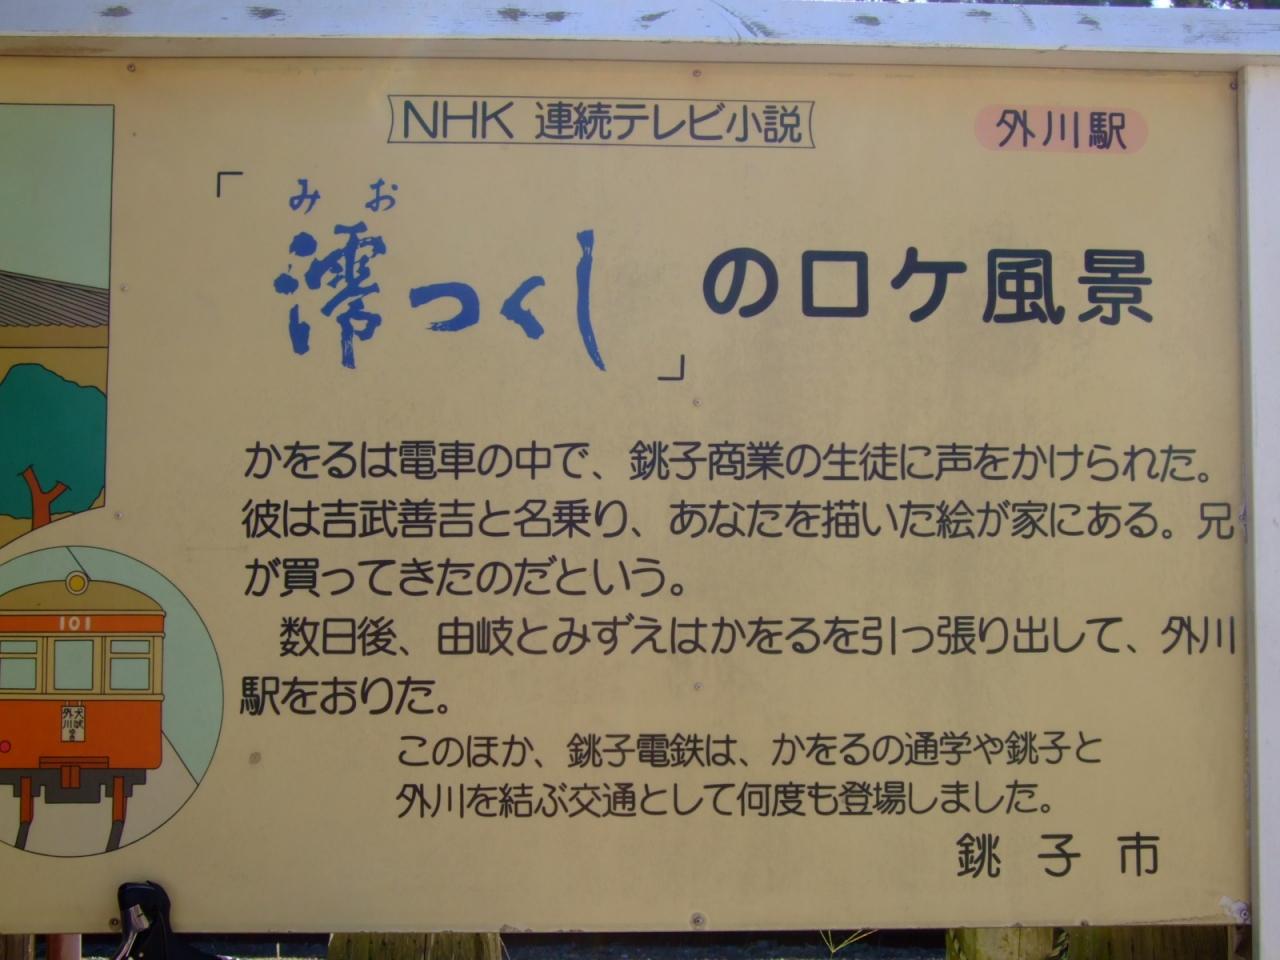 NHK 連続テレビ小説
外川駅
みお
「澪つくし」のロケ風景
かをるは電車の中で、銚子商業の生徒に声をかけられた。
彼は吉武善吉と名乗り、あなたを描いた絵が家にある。兄
が買ってきたのだという。
数日後、由岐とみずえはかをるを引っ張り出して、外川
駅をおりた。
このほか、銚子電鉄は、かをるの通学や銚子と
外川を結ぶ交通として何度も登場しました。
銚子市
101
外川